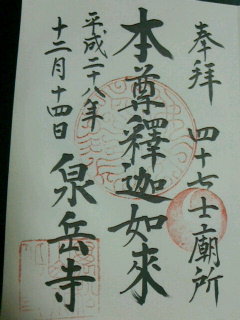 奉拝 四十七士廟所
本尊釋迦如來
平成二十八年
十二月十四日
泉岳寺